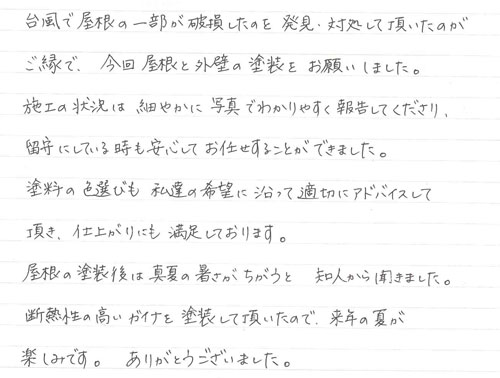 台風で屋根の一部が破損したのを 発見・対処して頂いたのが
ご縁で、今回 屋根と外壁の塗装を お願いしました。
施工の状況は 細やかに 写真でわかりやすく報告してくださり、
留守にしている時も安心してお任せすることができました。
塗料の色選びも 私達の希望に沿って適切にアドバイスして
頂き、仕上がりにも 満足しております。
屋根の塗装後は真夏の暑さがちがうと 知人から聞きました。
断熱性の高いガイナを塗装して頂いたので、来年の夏が
楽しみです。 ありがとうございました。